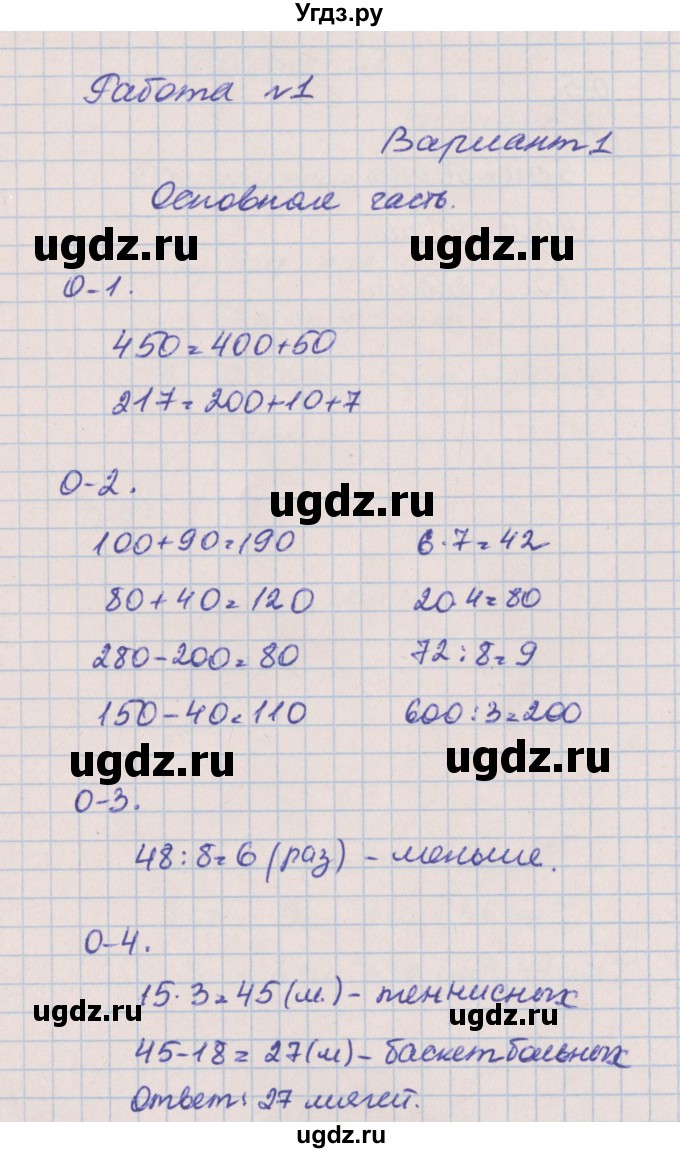 Угдз.ру
Работа №1
Вариант 1
Основная часть.
ugdz.ru ugdz.ru
О-1.
450=400+50
217=200+10+7
О-2.
ugdz.ru
100+90=190 6·7=42
80+40=120 20·4=80
280-200=80 72:8=9
150-40=110 600:3=200
ugdz.ru ugdz.ru
О-3.
48:8=6 (раз) - меньше.
О-4.
15·3=45 (м.) - теннисных
ugdz.ru ugdz.ru
45-18=27(м) - баскетбольных
Ответ: 27 мячей.
ugdz.ru